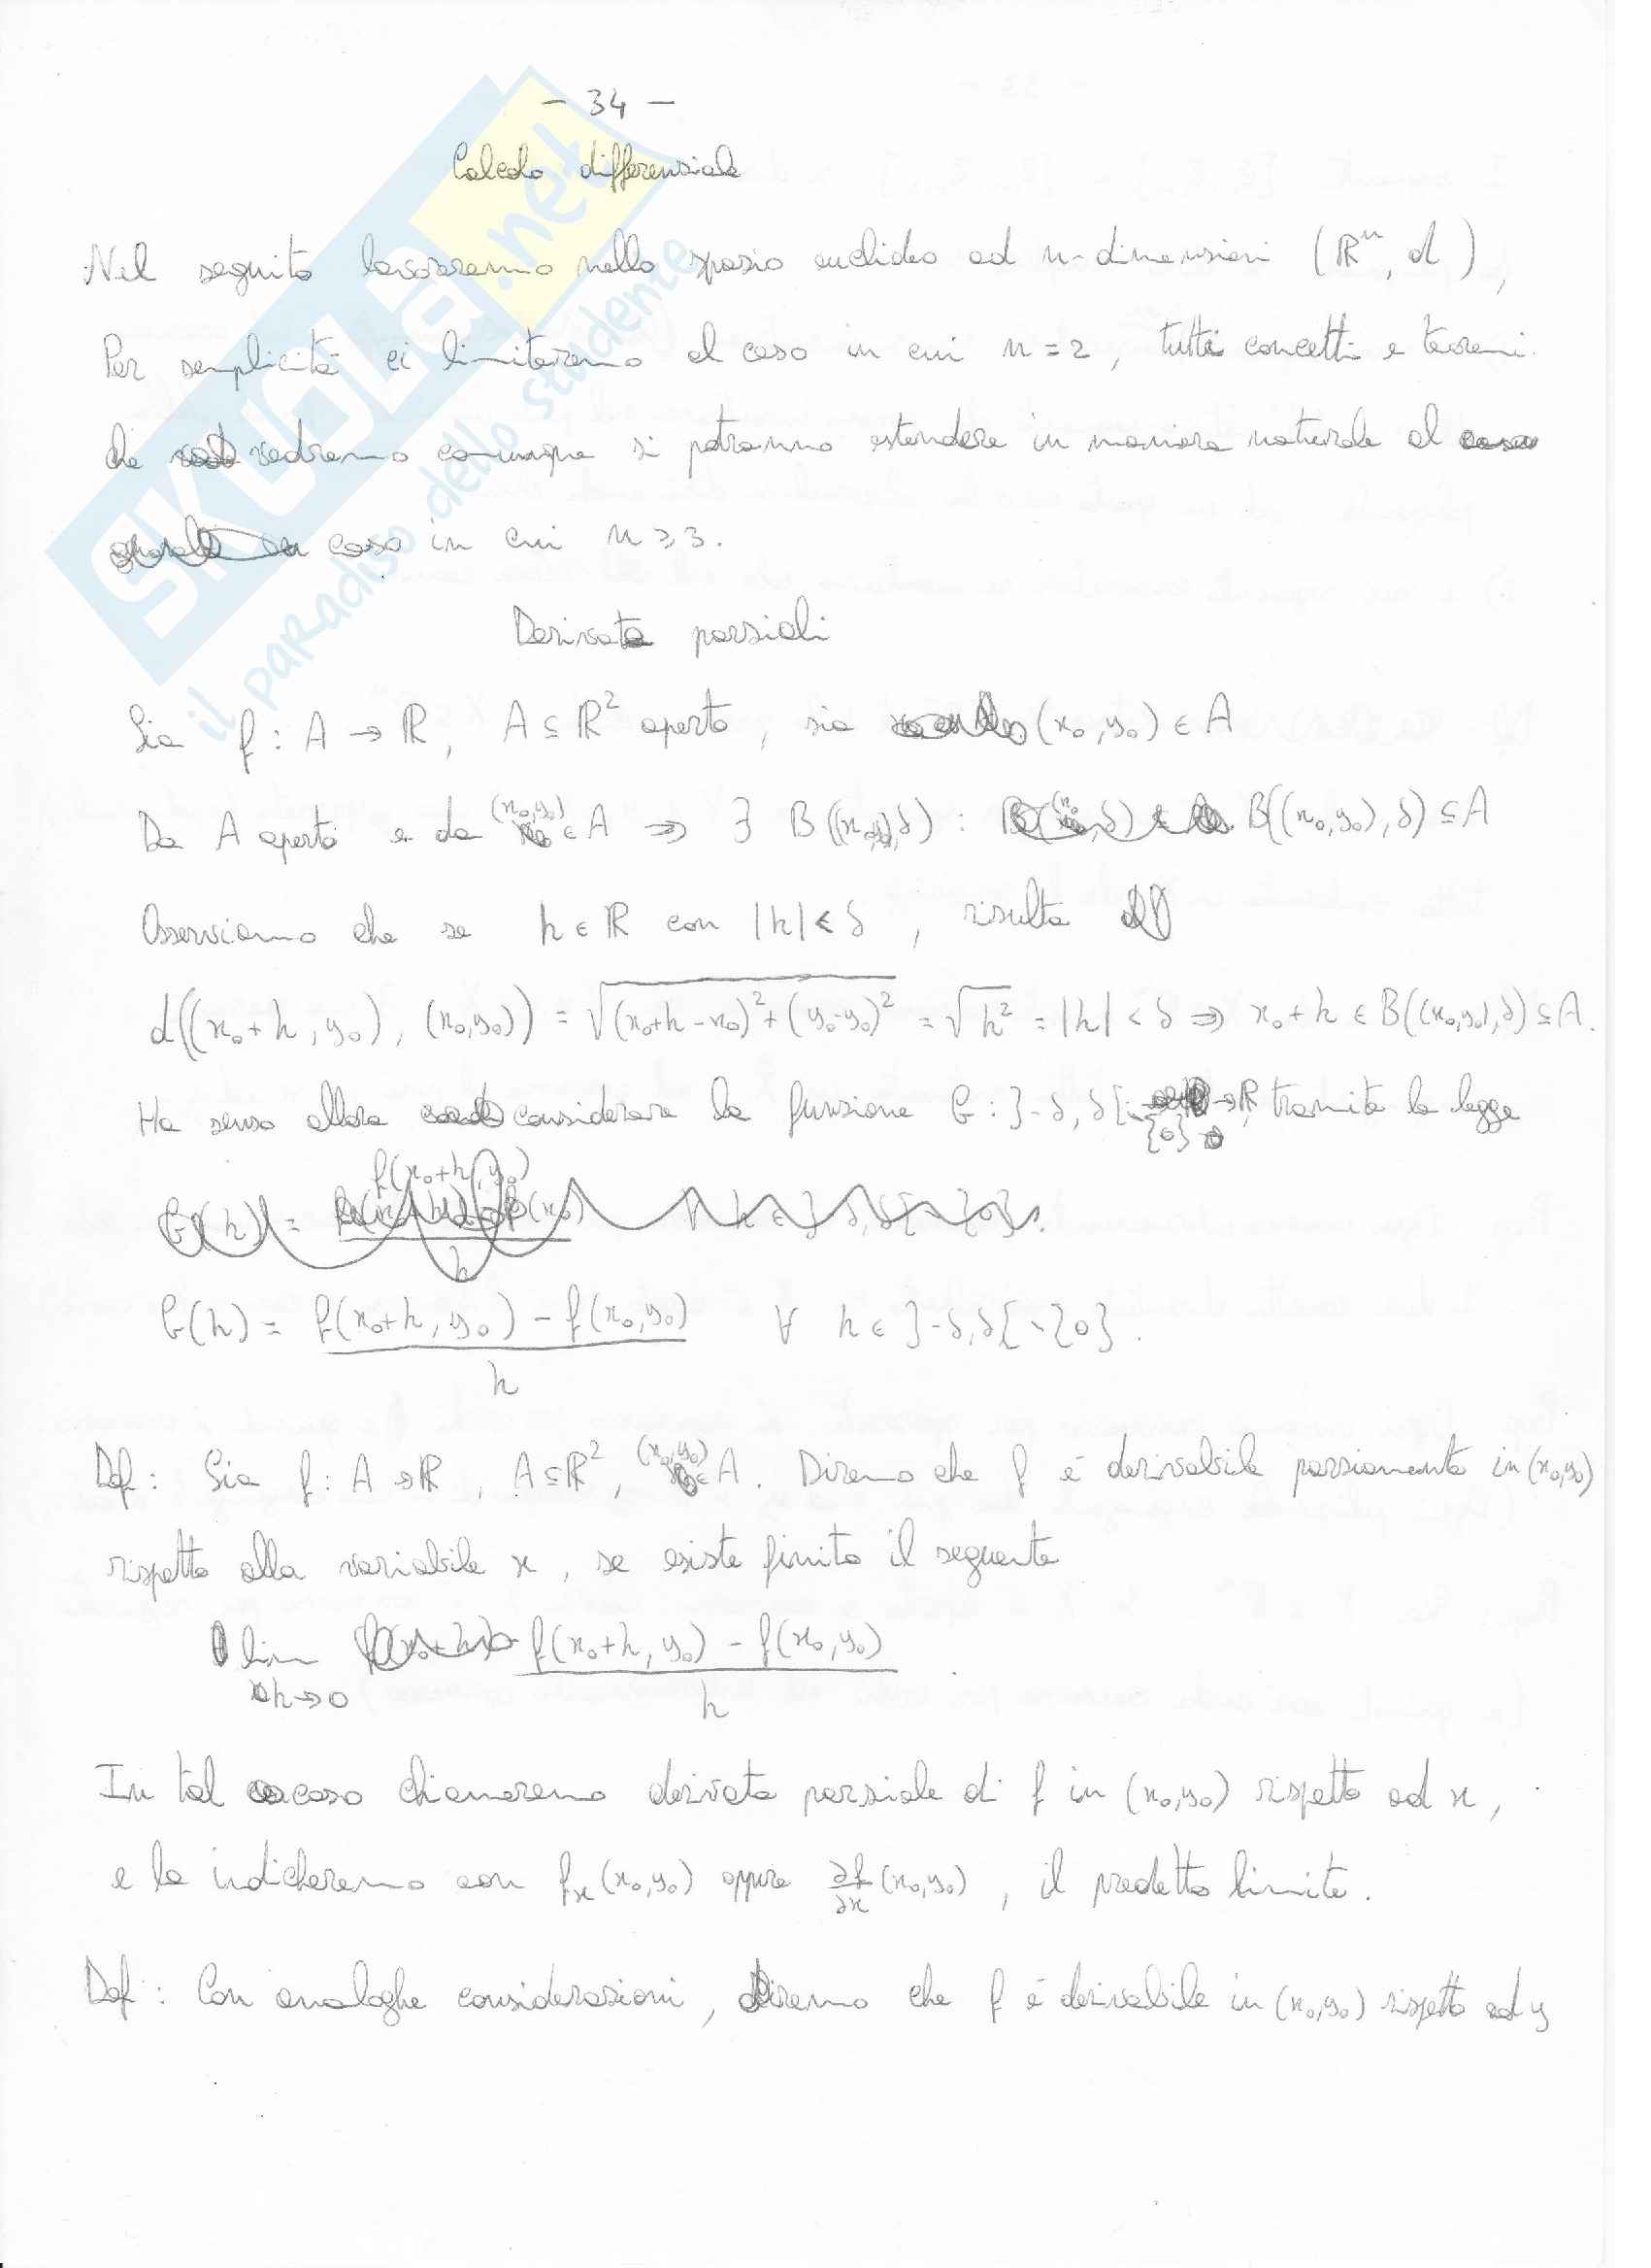 - 34 -
Calcolo differenziale
Nel seguito lavoreremo nello spazio euclideo ad n-dimensioni (ℝⁿ, d),
Per semplicità ci limiteremo al caso in cui n = 2, tutti concetti e teoremi
che vedremo comunque si potranno estendere in maniera naturale al
caso in cui n ≥ 3.
Derivate parziali
Sia f : A → ℝ, A ⊆ ℝ² aperto, sia (x₀, y₀) ∈ A
Da A aperto e da (x₀, y₀) ∈ A ⇒ ∃ B((x₀,y₀),δ) : B((x₀,y₀),δ) ⊆ A
Osserviamo che se h ∈ ℝ con |h| < δ, risulta
d((x₀+h, y₀), (x₀,y₀)) = √((x₀+h-x₀)² + (y₀-y₀)²) = √h² = |h| < δ ⇒ x₀+h ∈ B((x₀,y₀),δ) ⊆ A.
Ha senso allora considerare la funzione G : ]-δ, δ[ \ {0} → ℝ, tramite la legge
G(h) = f(x₀+h, y₀) - f(x₀,y₀) / h ∀ h ∈ ]-δ,δ[ \ {0}.
Def : Sia f : A → ℝ, A ⊆ ℝ², (x₀,y₀) ∈ A. Diremo che f è derivabile parziamente in (x₀,y₀)
rispetto alla variabile x, se esiste finito il seguente
lim h→0 f(x₀+h, y₀) - f(x₀, y₀) / h
In tal caso chiameremo derivata parziale di f in (x₀,y₀) rispetto ad x,
e la indicheremo con fₓ(x₀,y₀) oppure ∂f/∂x (x₀,y₀), il predetto limite.
Def : Con analoghe considerazioni, diremo che f è derivabile in (x₀,y₀) rispetto ad y
SKUOLa.net
il paRadiso dello studente